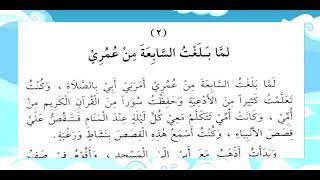 (٢)
لمَّا بَلَغْتُ السَّابِعَةَ مِنْ عُمُرِيْ
لَمَّا بَلَغْتُ السَّابِعَةَ مِنْ عُمُرِيْ أَمَرَنِيْ أَبِيْ بِالصَّلَاةِ ، وَكُنْتُ
تَعَلَّمْتُ كَثِيْراً مِنَ الْأَدْعِيَةِ وَحَفِظْتُ سُوَراً مِنَ الْقُرْآنِ الْكَرِيْمِ مِنْ
أُمِّيْ ، وَكَانَتْ أُمِّيْ تَتَكَلَّمُ مَعِيْ كُلَّ لَيْلَةٍ عِنْدَ الْمَنَامِ فَتَقُصُّ عَلَيَّ
قِصَصَ الْأَنْبِيَاءِ ، وَكُنْتُ أَسْمَعُ هٰذِهِ الْقِصَصَ بِنَشَاطٍ وَرَغْبَةٍ .
وَبَدَأْتُ أَذْهَبُ مَعَ أَبِيْ إِلَى الْمَسْجِدِ ، وَأَقُوْمُ فِيْ صَفِّ